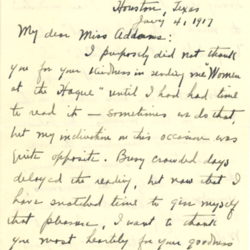 Houston, Texas
Jan'y 4, 1917
My dear Miss Addams:
I purposely did not thank
you for your kindness in sending me "Women
at the Hague" until I had had time
to read it — sometimes we do that,
but my inclination on this occasion was
quite opposite. Busy crowded days
delayed the reading, but now that I
have snatched time to give myself
that pleasure, I want to thank
you most heartily for your goodness